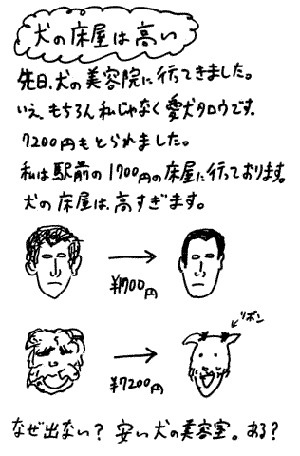 犬の床屋は高い
先日、犬の美容院に行てきました。
いえ、もちろん私じゃなく愛犬タロウです。
7200円もとられました。
私は駅前の1700円の床屋に行っております。
犬の床屋は、高すぎます。
¥1700円
リボン
¥7200円
なぜ出ない？ 安い犬の美容室。ある？